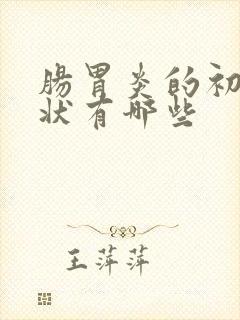 腸胃炎的初
狀有哪些
王萍萍